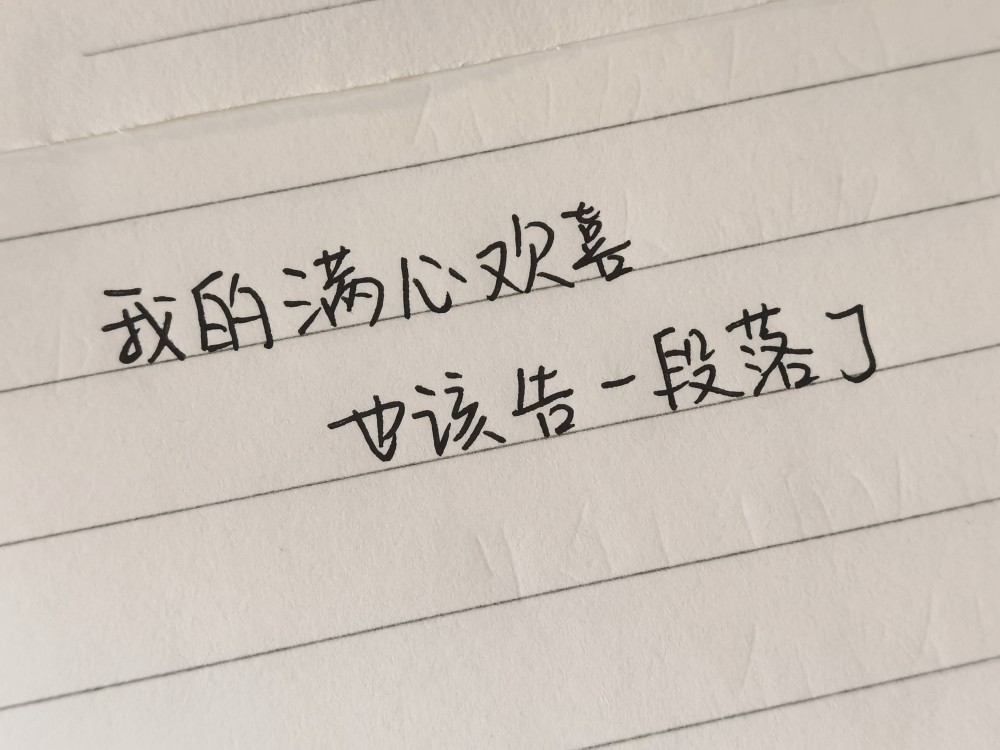 我的满心欢喜
也该告一段落了